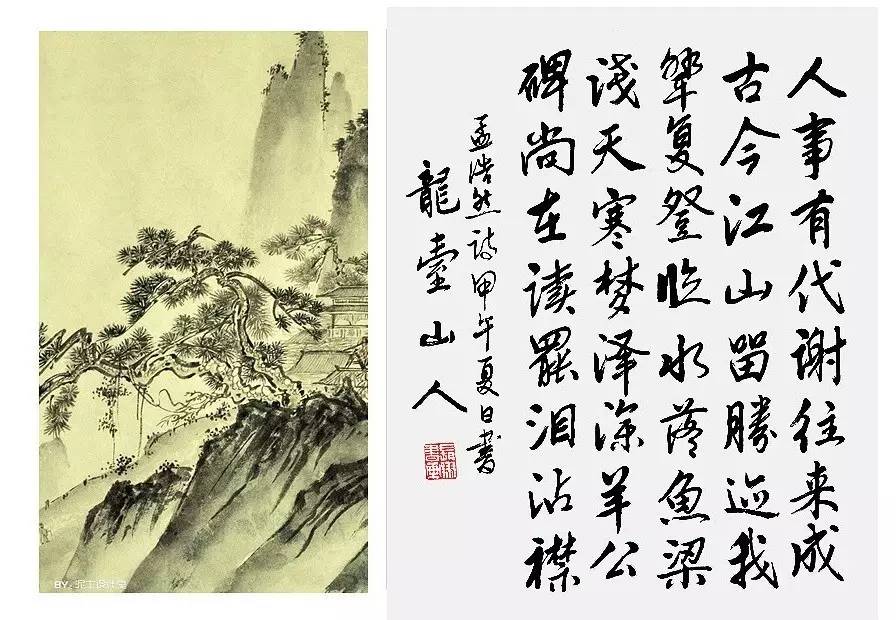 人事有代谢往来成
古今江山留勝迹我
輩复登临水落魚梁
淺天寒梦泽深羊公
碑尚在读罷泪沾襟
孟浩然诗甲午夏日書
龍臺山人
BY.